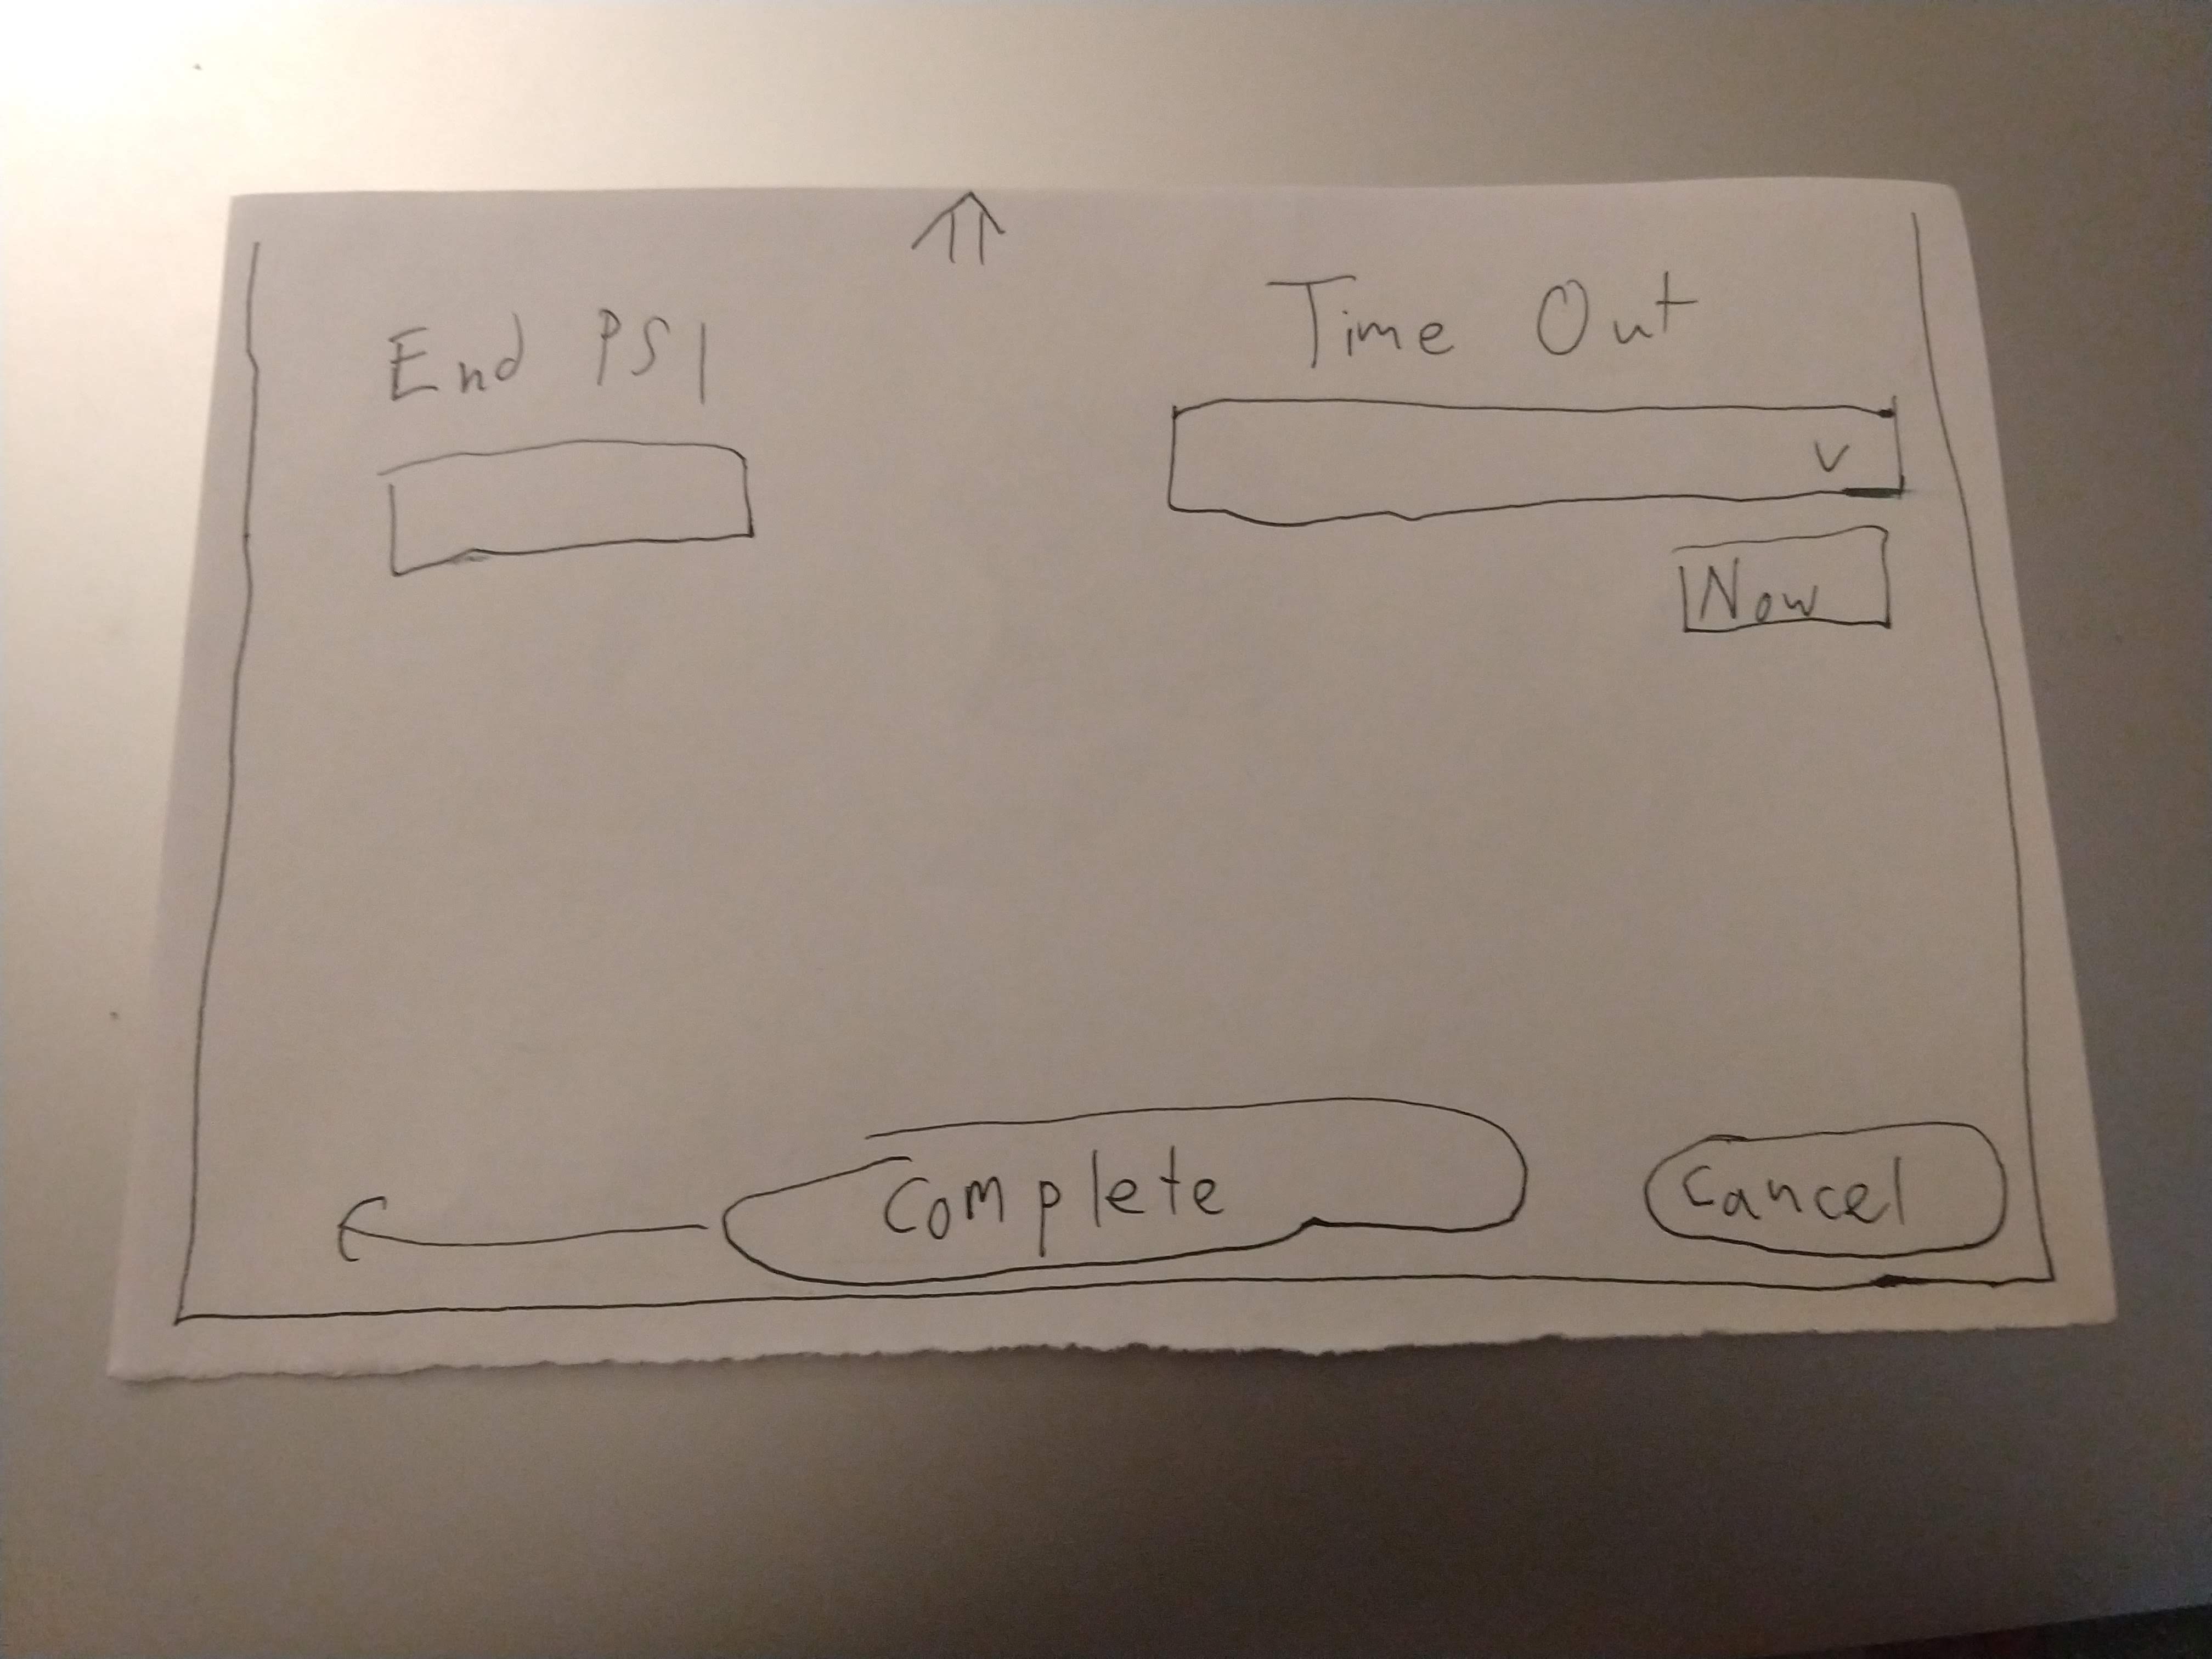 End PSI
Time Out
v
Now
Complete
Cancel